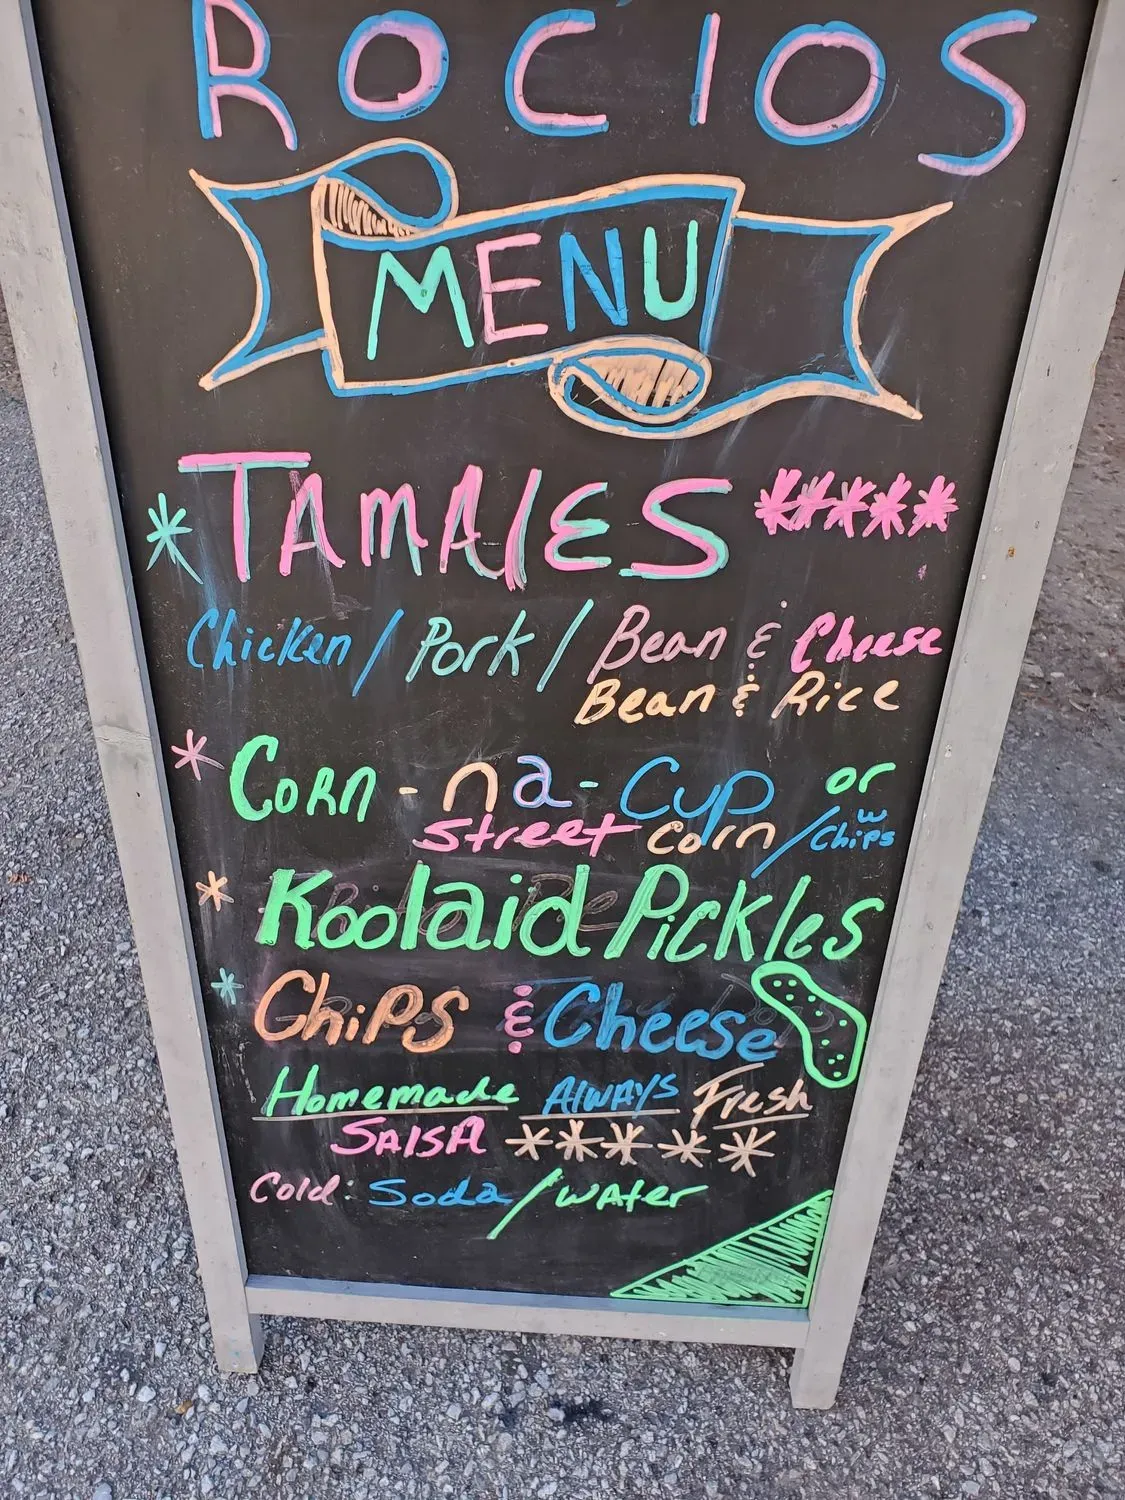 ROCIOS
MENU
* TAMAlES *****
Chicken / Pork / Bean & Cheese
Bean & Rice
* CORN - na - Cup or
Street Corn / w Chips
* Koolaid Pickles
* ChiPS & Cheese
Homemade AlWAYS Fresh
SAlSA *****
Cold: Soda / WAter